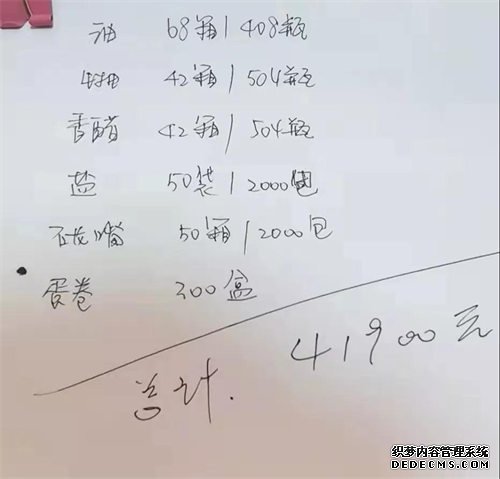 油 68箱/408瓶
生抽 42箱/504瓶
香醋 42箱/504瓶
盐 50袋/2000包
50箱/2000包
蛋卷 300盒
总计. 41900元
织梦内容管理系统
DEDECMS.COM